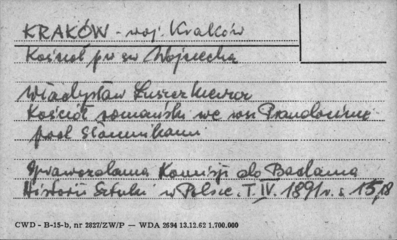 KRAKÓW - woj. Kraków
Kościół pw św Wojciecha
Władysław Łuszczkiewicz
Kościół romański we wsi Prandocinie
pod Słomnikami
Sprawozdania Komisji do Badania
Historii Sztuki w Polsce. T. IV. 1891 r. s 15,8
CWD - B-15-b, nr 2827/ZW/P — WDA 2694 13.12.62 1.700.000